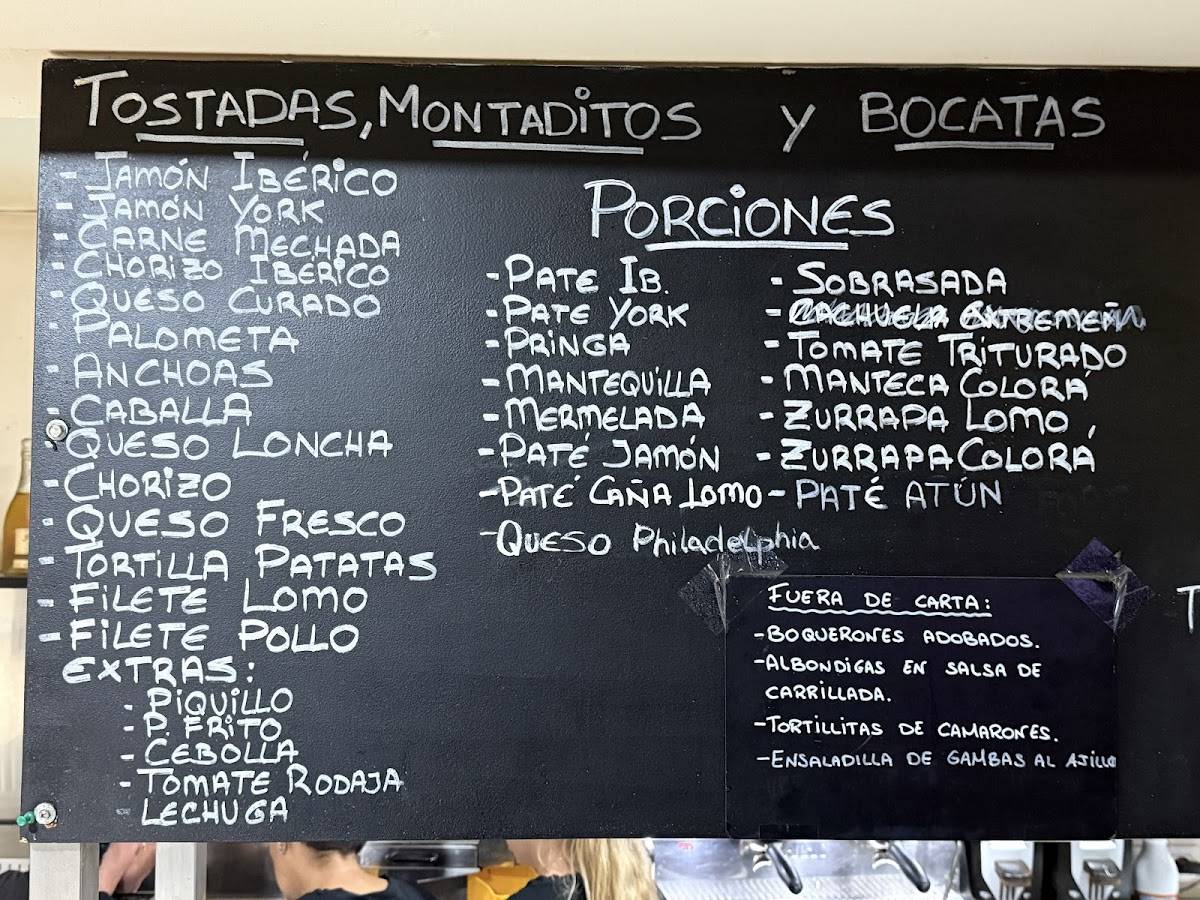 TOSTADAS, MONTADITOS Y BOCATAS
- JAMÓN IBÉRICO
- JAMÓN YORK
- CARNE MECHADA
- CHORIZO IBÉRICO
- QUESO CURADO
- PALOMETA
- ANCHOAS
- CABALLA
- QUESO LONCHA
- CHORIZO
- QUESO FRESCO
- TORTILLA PATATAS
- FILETE LOMO
- FILETE POLLO
EXTRAS:
- PIQUILLO
- P. FRITO
- CEBOLLA
- TOMATE RODAJA
- LECHUGA
PORCIONES
- PATE IB.
- PATE YORK
- PRINGA
- MANTEQUILLA
- MERMELADA
- PATÉ JAMÓN
- PATÉ CAÑA LOMO
- QUESO Philadelphia
- SOBRASADA
- CACHUELA EXTREMEÑA
- TOMATE TRITURADO
- MANTECA COLORÁ
- ZURRAPA LOMO
- ZURRAPA COLORÁ
- PATÉ ATÚN
FUERA DE CARTA:
- BOQUERONES ADOBADOS.
- ALBONDIGAS EN SALSA DE
CARRILLADA.
- TORTILLITAS DE CAMARONES.
- ENSALADILLA DE GAMBAS AL AJILLO